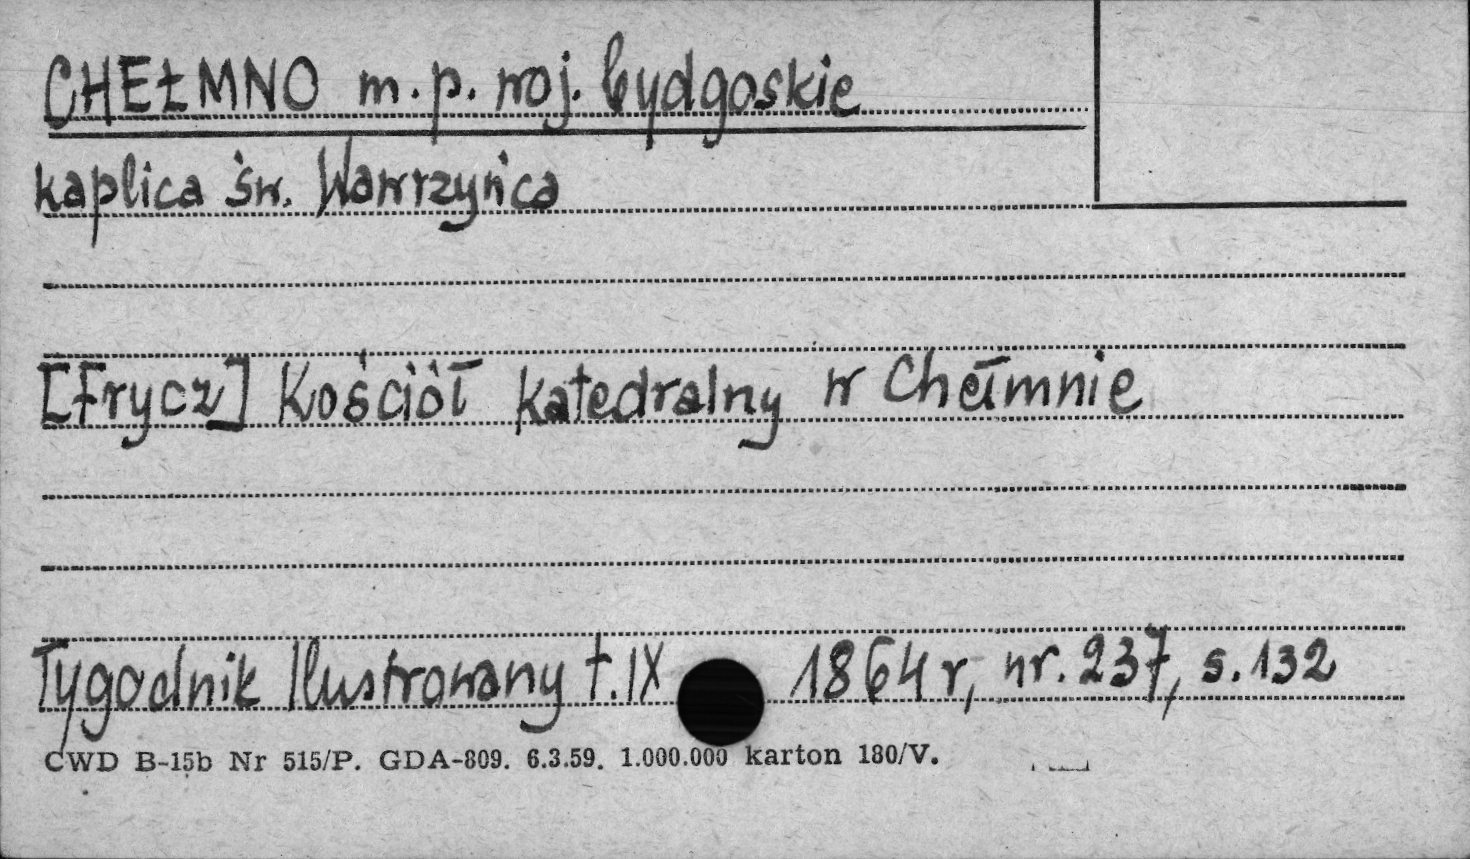 CHEŁMNO m.p. woj. bydgoskie
kaplica św. Wawrzyńca
[Frycz] Kościół katedralny w Chełmnie
Tygodnik Ilustrowany t.IX 1864 r, nr. 237, s. 132
CWD B-15b Nr 515/P. GDA-809. 6.3.59. 1.000.000 karton 180/V.